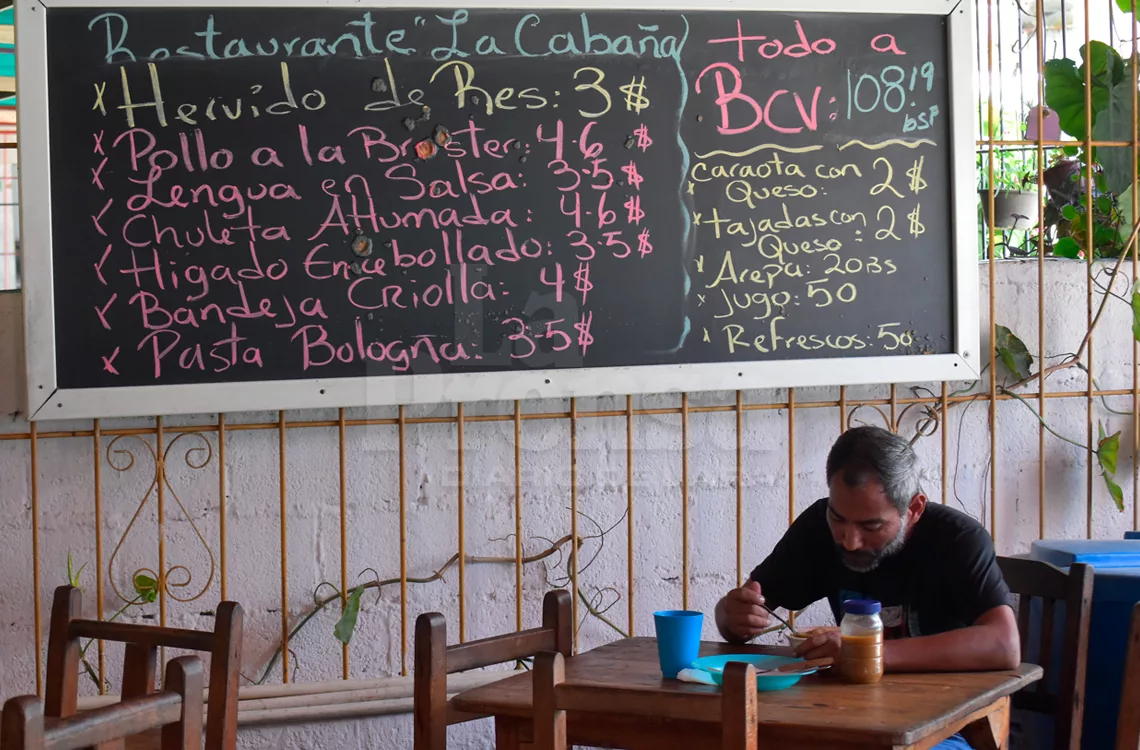 Restaurante "La Cabaña
x Hervido de Res: 3 $
x Pollo a la Broster: 4.6 $
x Lengua en Salsa: 3.5 $
✓ Chuleta AHumada: 4.6 $
✓ Higado Encebollado: 3.5 $
✓ Bandeja Criolla: 4 $
x Pasta Bologña: 3.5 $
todo a
BCV: 108,19
bsf
x caraota con
Queso: 2 $
x tajadas con
Queso: 2 $
x Arepa: 20Bs
x Jugo: 50
x Refrescos: 50
La
Prensa
DIARIO DE LARA